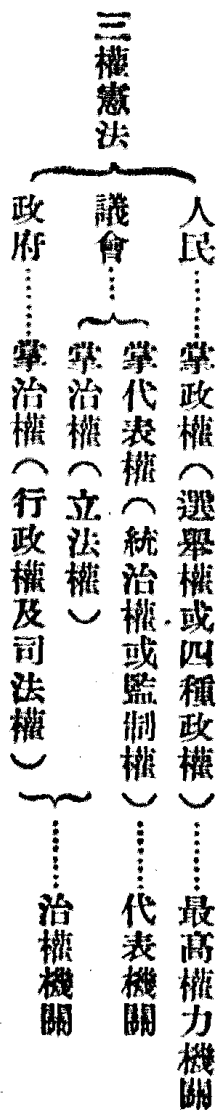 三權憲法
人民……掌政權（選舉權或四種政權）……最高權力機關
議會……掌代表權（統治權或監制權）……代表機關
掌治權（立法權）
政府……掌治權（行政權及司法權）……治權機關